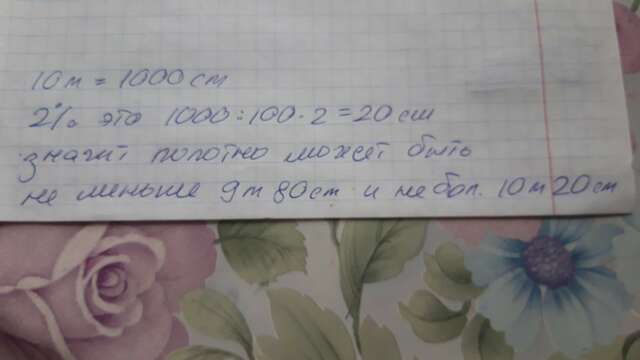 10м = 1000 см
2% это 1000:100·2=20 см
значит полотно может быть
не меньше 9м 80см и не бол. 10м 20см